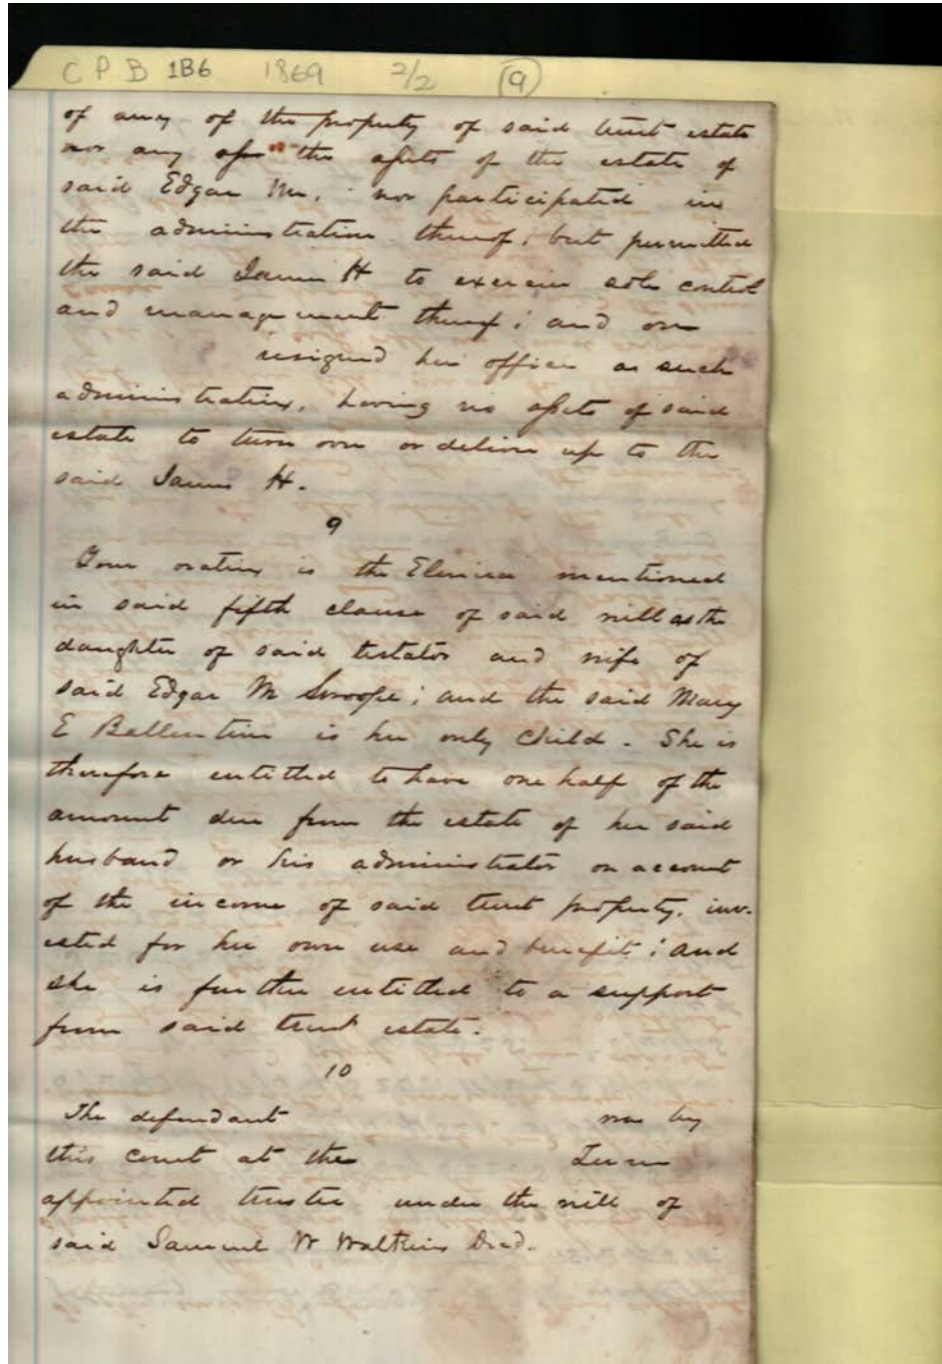 C P B 1B6 1869 2/2 (9)
of any of the property of said trust estate
nor any of the assets of the estate of
said Edgar M. nor participated in
the administration thereof; but permitted
the said James H to exercise sole control
and management thereof; and on
resigned her office as such
administratrix, having no assets of said
estate to turn over or deliver up to the
said James H.
9
Your oratrix is the Elmira mentioned
in said fifth clause of said will as the
daughter of said testator and wife of
said Edgar M Swoope; and the said Mary
E Ballentine is her only child. She is
therefore entitled to have one half of the
amount due from the estate of her said
husband or his administrator on account
of the income of said trust property, inv-
ested for her own use and benefit; and
she is further entitled to a support
from said trust estate.
10
The defendant was by
this court at the Term
appointed trustee under the will of
said Samuel W Watkins Decd.